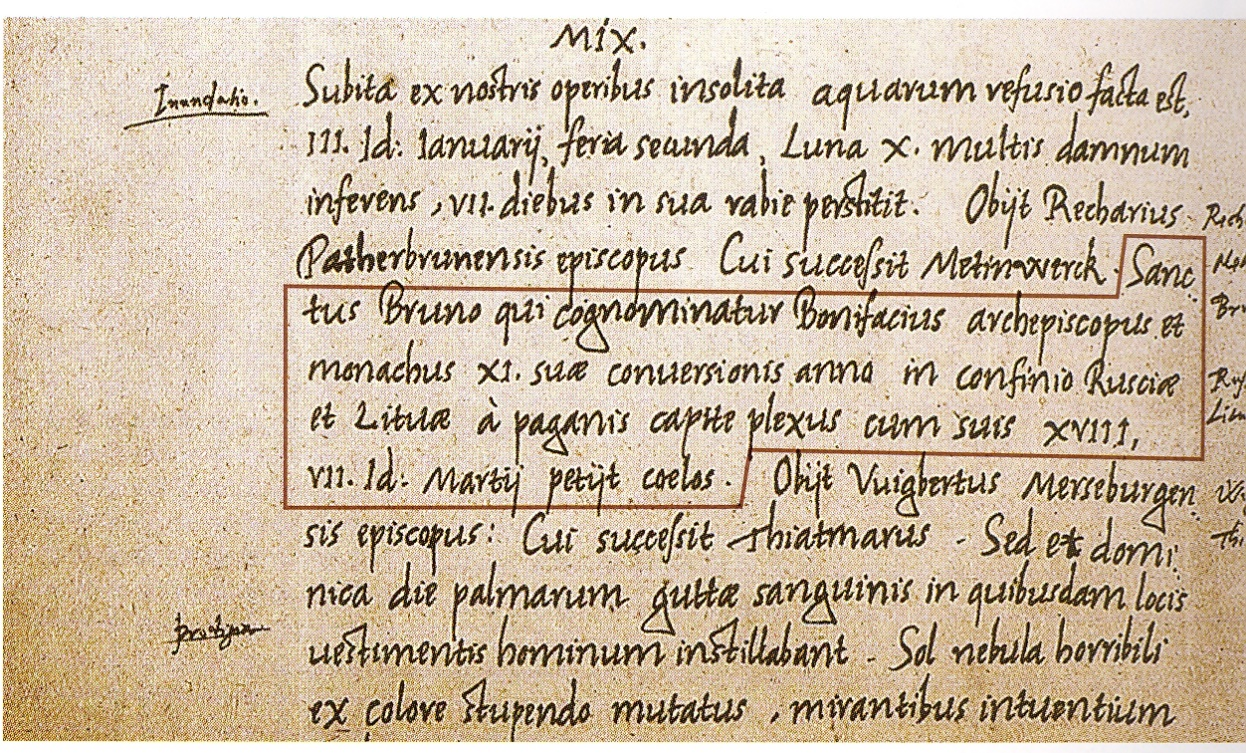 MIX.
Inundatio.
Subita ex nostris operibus insolita aquarum refusio facta est,
III. Id: Ianuarij, feria secunda, Luna X. multis damnum
inferens, VII. diebus in sua rabie perstitit. Obijt Recharius
Patherbrunensis episcopus Cui successit Metinwerck. Sanc
tus Bruno qui cognominatur Bonifacius archepiscopus et
monachus XI. suæ conversionis anno in confinio Rusciæ
et Lituæ à paganis capite plexus cum suis XVIII,
VII. Id: Martij petijt coelos. Obijt Vuigbertus Merseburgen
sis episcopus: Cui successit Thiatmarus. Sed et domi
nica die palmarum guttæ sanguinis in quibusdam locis
uestimentis hominum instillabant. Sol nebula horribili
ex colore stupendo mutatus, mirantibus intuentium